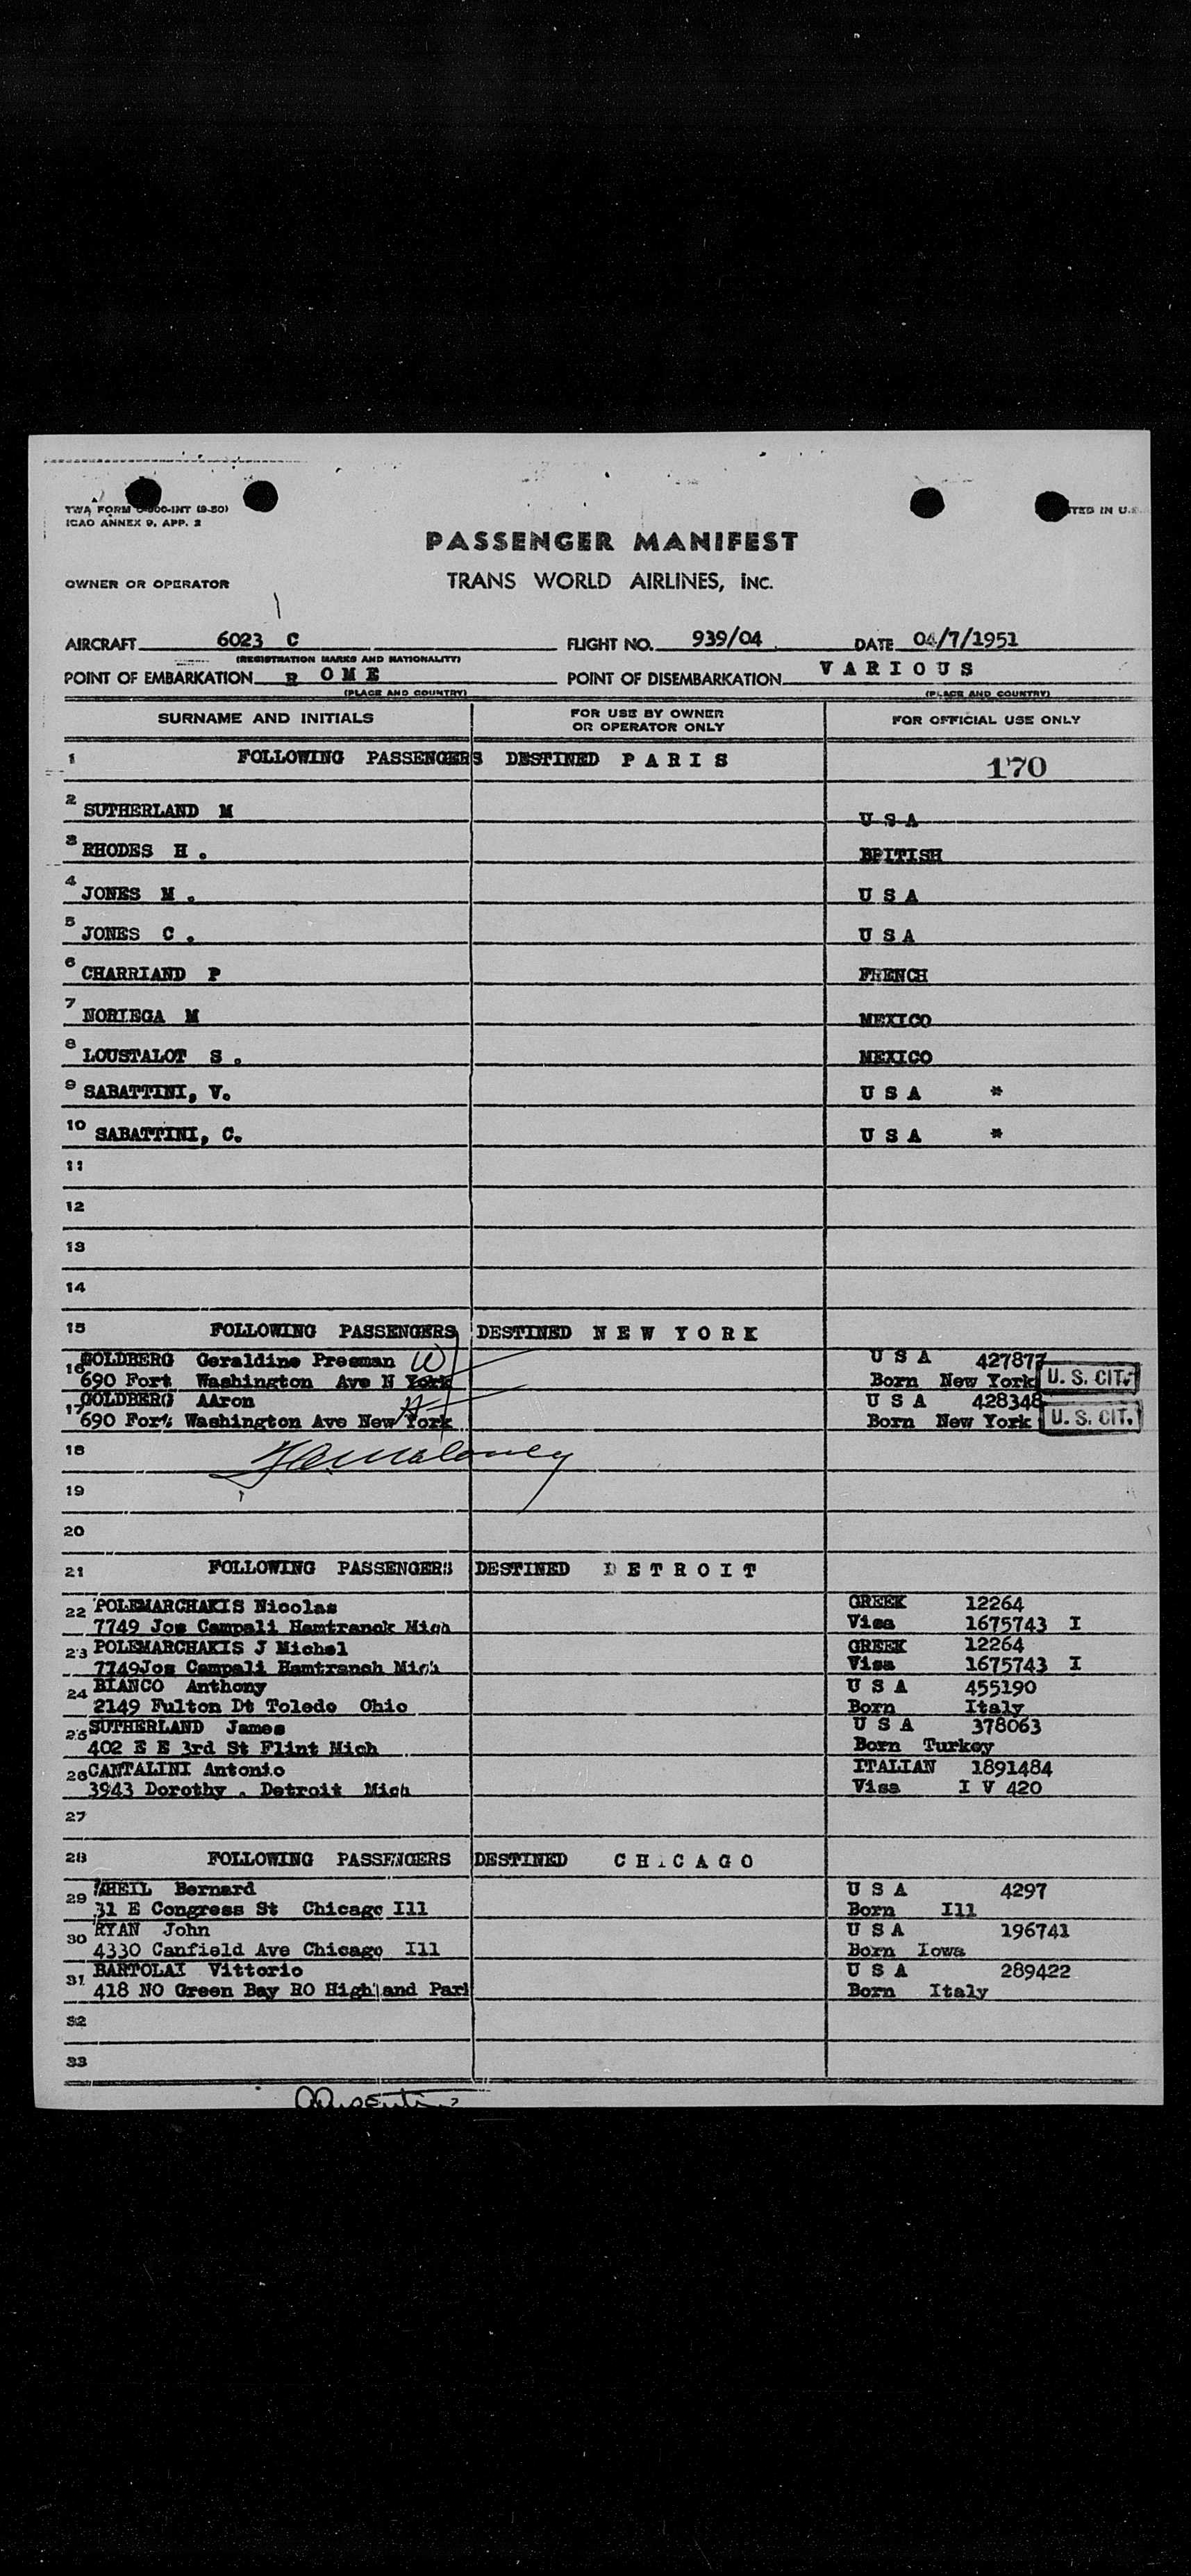 TWA FORM -INT (9-50)
ICAO ANNEX 9, APP. 2
TED IN U.S.
PASSENGER MANIFEST
OWNER OR OPERATOR TRANS WORLD AIRLINES, INC.
AIRCRAFT 6023 C FLIGHT NO. 939/04 DATE 04/7/1951
(REGISTRATION MARKS AND NATIONALITY)
POINT OF EMBARKATION R O M E POINT OF DISEMBARKATION V A R I O U S
(PLACE AND COUNTRY) (PLACE AND COUNTRY)
SURNAME AND INITIALS FOR USE BY OWNER OR OPERATOR ONLY FOR OFFICIAL USE ONLY
1 FOLLOWING PASSENGERS DESTINED P A R I S 170
2 SUTHERLAND M U S A
3 RHODES H . BRITISH
4 JONES M . U S A
5 JONES C . U S A
6 CHARRIAND P FRENCH
7 NORIEGA M MEXICO
8 LOUSTALOT S . MEXICO
9 SABATTINI, V. U S A *
10 SABATTINI, C. U S A *
11
12
13
14
15 FOLLOWING PASSENGERS DESTINED N E W Y O R K
16 GOLDBERG Geraldine Presman W U S A 427877
690 Fort Washington Ave N York Born New York U. S. CIT.
17 GOLDBERG AAron U S A 428348
690 Fort Washington Ave New York Born New York U. S. CIT.
18
19
20
21 FOLLOWING PASSENGERS DESTINED D E T R O I T
22 POLEMARCHAKIS Nicolas GREEK 12264
7749 Jos Campali Hamtranck Mich Visa 1675743 I
23 POLEMARCHAKIS J Michel GREEK 12264
7749Jos Campali Hamtranch Mich Visa 1675743 I
24 BIANCO Anthony U S A 455190
2149 Fulton Dt Toledo Ohio Born Italy
25 SUTHERLAND James U S A 378063
402 E E 3rd St Flint Mich Born Turkey
26 CANTALINI Antonio ITALIAN 1891484
3943 Dorothy . Detroit Mich Visa I V 420
27
28 FOLLOWING PASSENGERS DESTINED C H I C A G O
29 SHEIL Bernard U S A 4297
31 E Congress St Chicago Ill Born Ill
30 RYAN John U S A 196741
4330 Canfield Ave Chicago Ill Born Iowa
31 BARTOLAI Vittorio U S A 289422
418 NO Green Bay RO Highland Park Born Italy
32
33